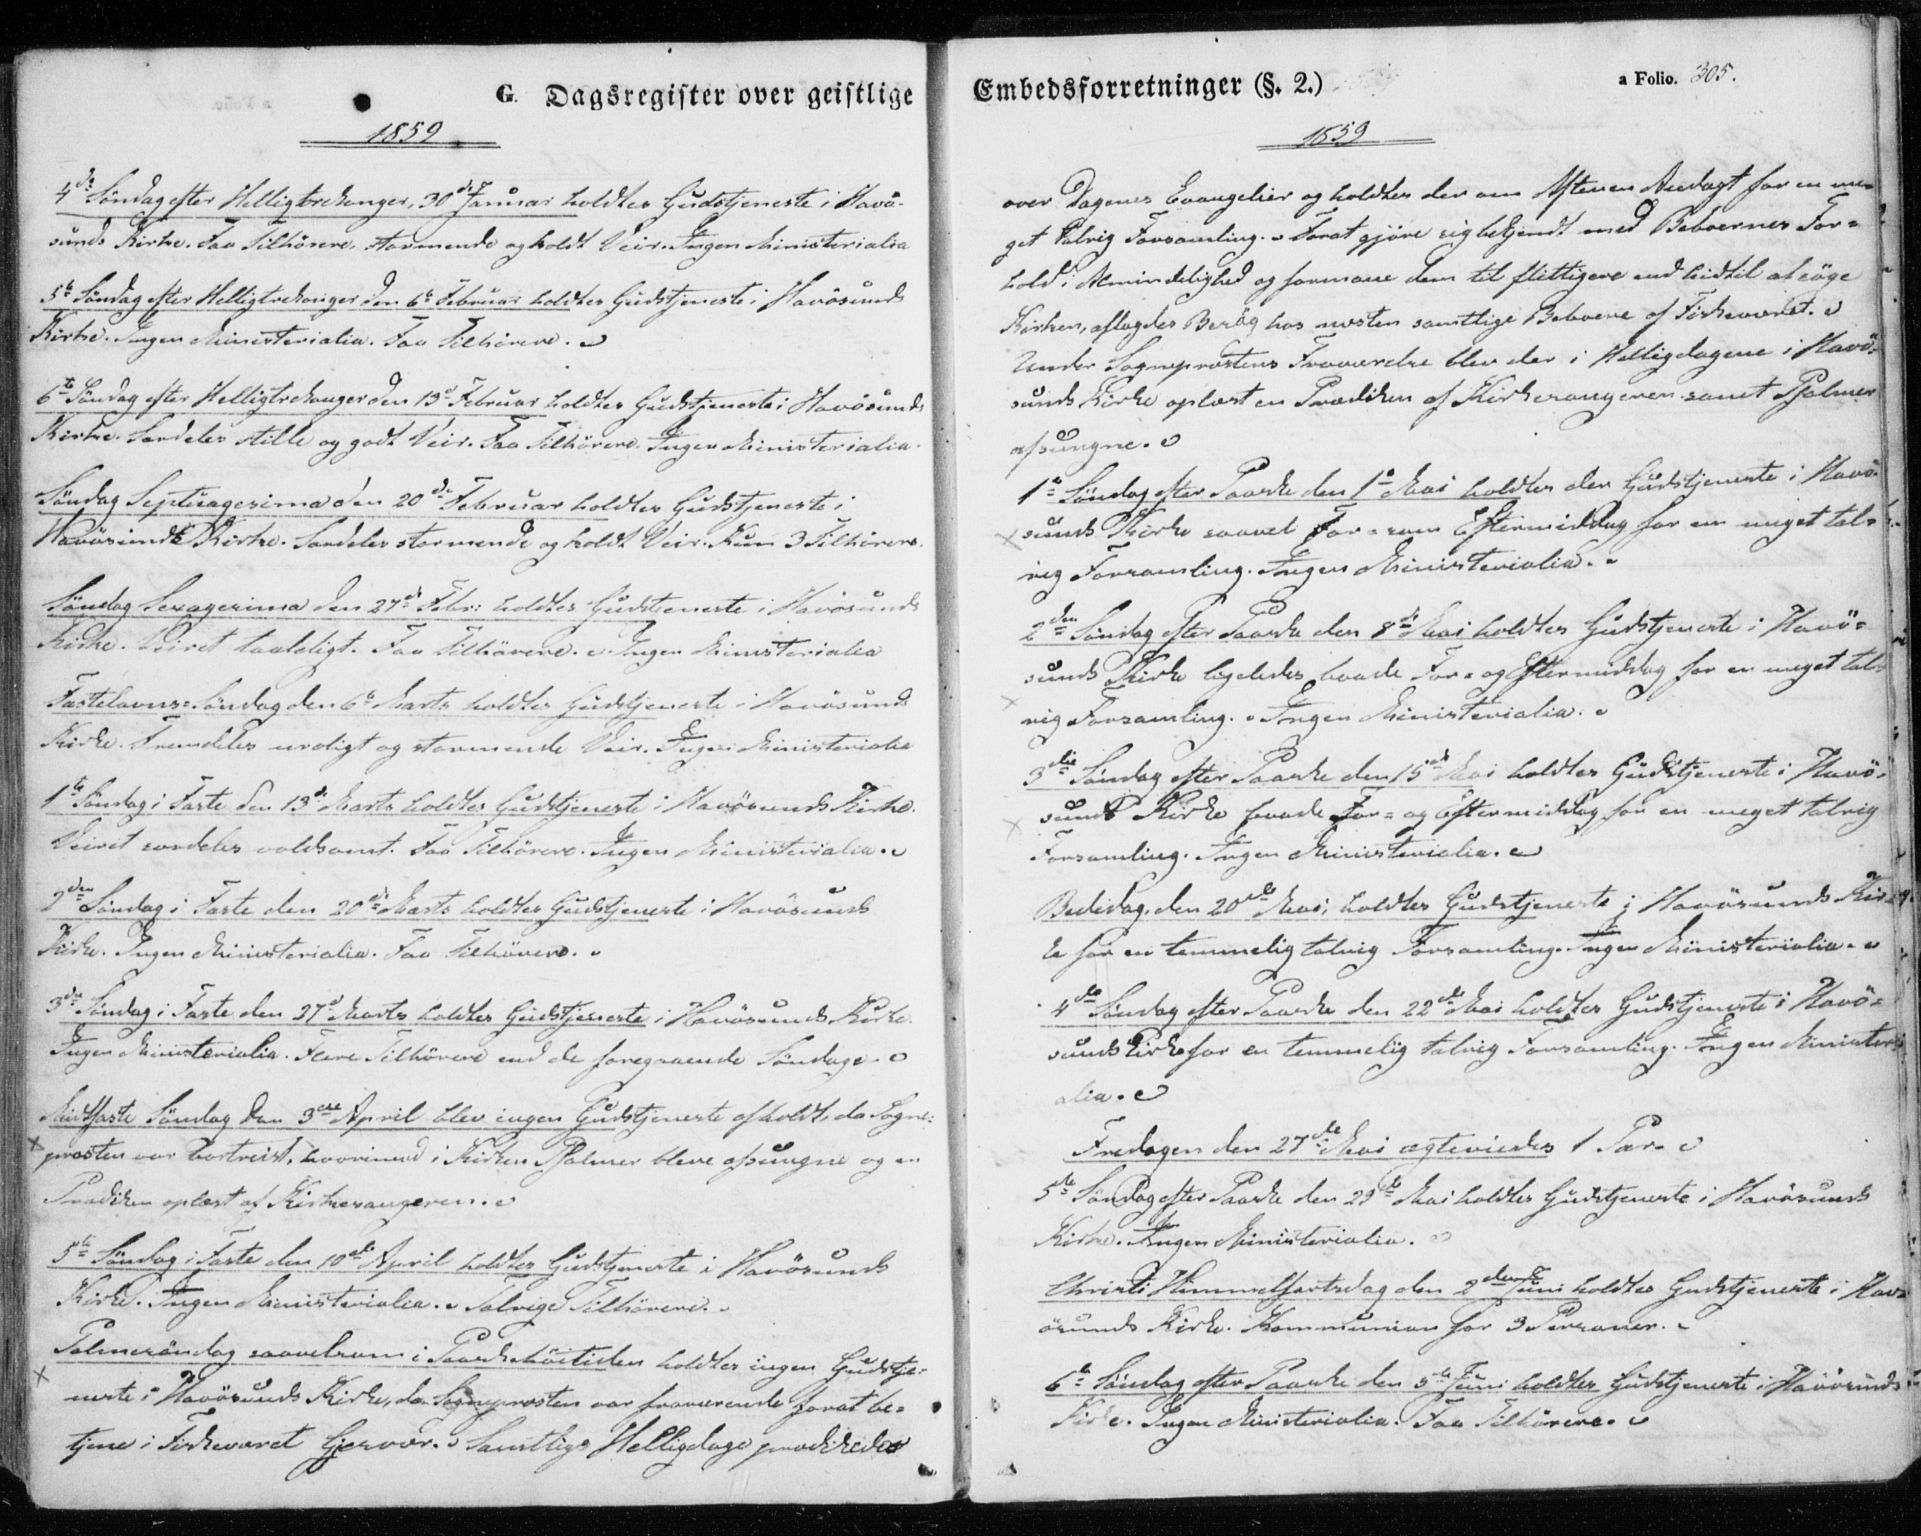 G. Dagsregister over geistlige
1859
4de Søndag efter Helligtrekonger, 30de Januar holdtes Gudstjeneste i Havö-
sunds Kirke. Faa Tilhörere, stormende og koldt Veir. Ingen Ministerialia
5te Søndag efter Helligtrekonger den 6te Februar holdtes Gudstjeneste i Havösunds
Kirke. Ingen Ministerialia. Faa Tilhörere.
6te Søndag efter Helligtrekonger den 13de Februar holdtes Gudstjeneste i Havösunds
Kirke. Særdeles stille og godt Veir. Faa Tilhörere. Ingen Ministerialia.
Søndag Septuagesima den 20de Februar holdtes Gudstjeneste i
Havösunds Kirke. Særdeles stormende og koldt Veir. Kun 3 Tilhörere.
Søndag Sexagesima den 27de Febr: holdtes Gudstjeneste i Havösunds
Kirke. Veiret taaleligt. Faa Tilhörere. Ingen Ministerialia
Fastelavns-Søndag den 6te Marts holdtes Gudstjeneste i Havösunds
Kirke. Fremdeles uroligt og stormende Veir. Ingen Ministerialia
1ste Søndag i Faste den 13de Marts holdtes Gudstjeneste i Havösunds Kirke.
Veiret særdeles voldsomt. Faa Tilhörere. Ingen Ministerialia.
2den Søndag i Faste den 20de Marts holdtes Gudstjeneste i Havösunds
Kirke. Ingen Ministerialia. Faa Tilhörere.
3die Søndag i Faste den 27de Marts holdtes Gudstjeneste i Havösunds Kirke.
Ingen Ministerialia. Flere Tilhörere end de foregaaende Søndage.
Midfaste Søndag den 3die April blev ingen Gudstjeneste afholdt, da Sogne-
præsten var bortreist, hvorimod i Kirken Psalmer bleve afsungne og en
Prædiken oplæst af Kirkesangeren.
5te Søndag i Faste den 10de April holdtes Gudstjeneste i Havösunds
Kirke. Ingen Ministerialia. Talrige Tilhörere.
Palmesöndag saavelsom i Paaskehöitiden holdtes ingen Gudstje-
neste i Havösunds Kirke, da Sognepræsten var fraværende forat be-
tjene i Fiskeværet Gjesvær. Samtlige Helligdage prædikedes
Embedsforretninger (§. 2.)
a Folio. 305.
1859
over Dagenes Evangelier og holdtes der om Aftenen Andagt for en me-
get talrig Forsamling. Forat gjöre sig bekjendt med Beboernes For-
hold i Almindelighed og formane dem til flittigere end hidtil at söge
Kirken, aflagdes Besög hos næsten samtlige Beboere af Fiskeværet.
Under Sognepræstens Fraværelse blev der i Helligdagene i Havö-
sunds Kirke oplæst en Prædiken af Kirkesangeren samt Psalmer
afsungne.
1ste Søndag efter Paaske den 1ste Mai holdtes der Gudstjeneste i Havö-
sunds Kirke saavel For- som Eftermiddag for en meget tal-
rig Forsamling. Ingen Ministerialia.
2den Søndag efter Paaske den 8de Mai holdtes Gudstjeneste i Havö-
sunds Kirke ligeledes baade For- og Eftermiddag for en meget tal-
rig Forsamling. Ingen Ministerialia.
3die Søndag efter Paaske den 15de Mai holdtes Gudstjeneste i Havö-
sunds Kirke baade For- og Eftermiddag for en meget talrig
Forsamling. Ingen Ministerialia.
Bededag, den 20de Mai, holdtes Gudstjeneste i Havösunds Kir-
ke for en temmelig talrig Forsamling. Ingen Ministerialia.
4de Søndag efter Paaske den 22de Mai holdtes Gudstjeneste i Havö-
sunds Kirke for en temmelig talrig Forsamling. Ingen Ministeri-
alia.
Fredagen den 27de Mai ægteviedes 1 Par.
5te Søndag efter Paaske den 29de Mai holdtes Gudstjeneste i Havösunds
Kirke. Ingen Ministerialia.
Christi Himmelfartsdag den 2den Juni holdtes Gudstjeneste i Hav-
ösunds Kirke. Kommunion for 3 Personer.
6te Søndag efter Paaske den 5te Juni holdtes Gudstjeneste i Havösunds
Kirke. Ingen Ministerialia. Faa Tilhörere.